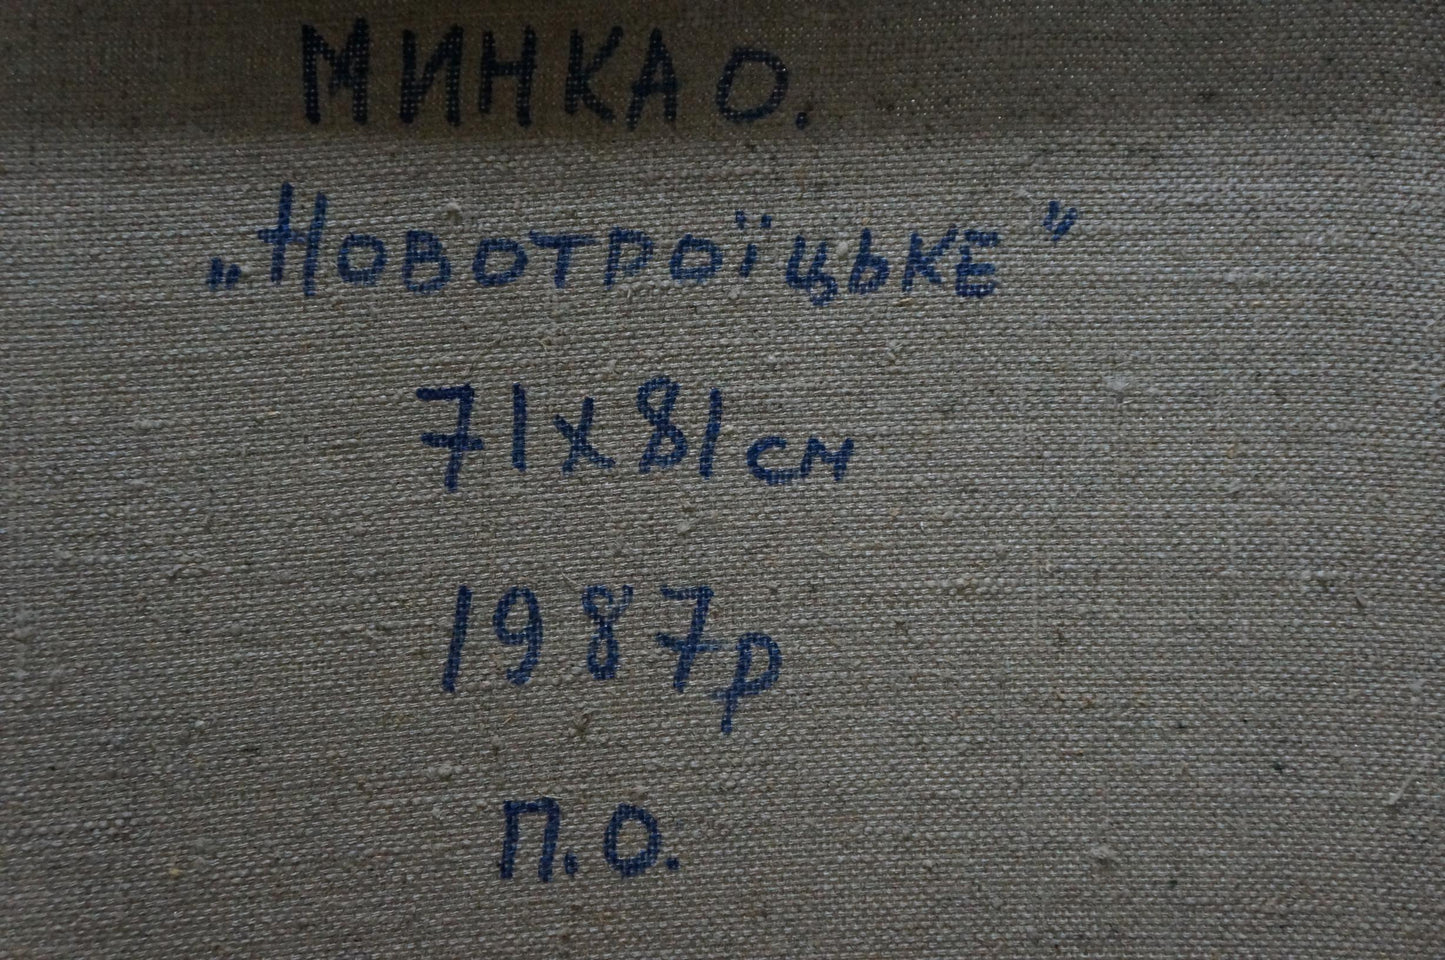 МИНКА О.
„Новотроїцьке”
71х81см
1987р
П.О.